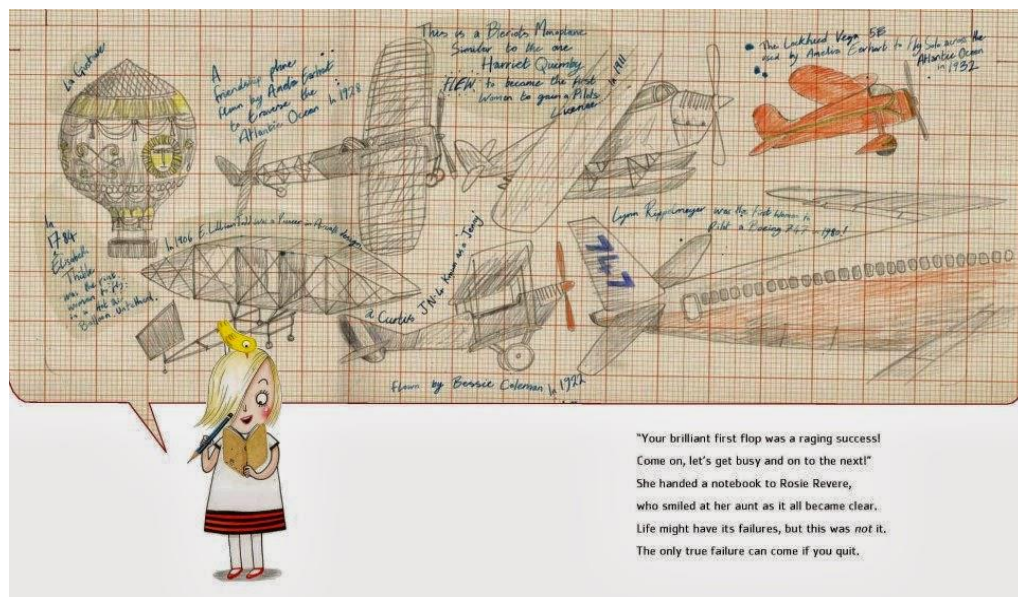 La Gustave
A
friendship plane
flown by Amelia Earhart
to traverse the
Atlantic Ocean in 1928
This is a Bleriots Monoplane
Similar to the one
Harriet Quimby
FLEW to become the first
Women to gain a Pilots
Licence in 1911
The Lockheed Vega 5B
used by Amelia Earhart to fly Solo across the
Atlantic Ocean
in 1932
In
1784
Elisabeth
Thible
was the first
woman to fly.
in a Hot air
Balloon Untethered.
In 1906 E. Lillian Todd was a Pioneer in Aircraft design
a Curtiss JN-4 Known as a 'Jenny'
flown by Bessie Coleman in 1922
Lynn Rippelmeyer was the first women to
Pilot a Boeing 747 - 1980!
747
"Your brilliant first flop was a raging success!
Come on, let's get busy and on to the next!"
She handed a notebook to Rosie Revere,
who smiled at her aunt as it all became clear.
Life might have its failures, but this was not it.
The only true failure can come if you quit.